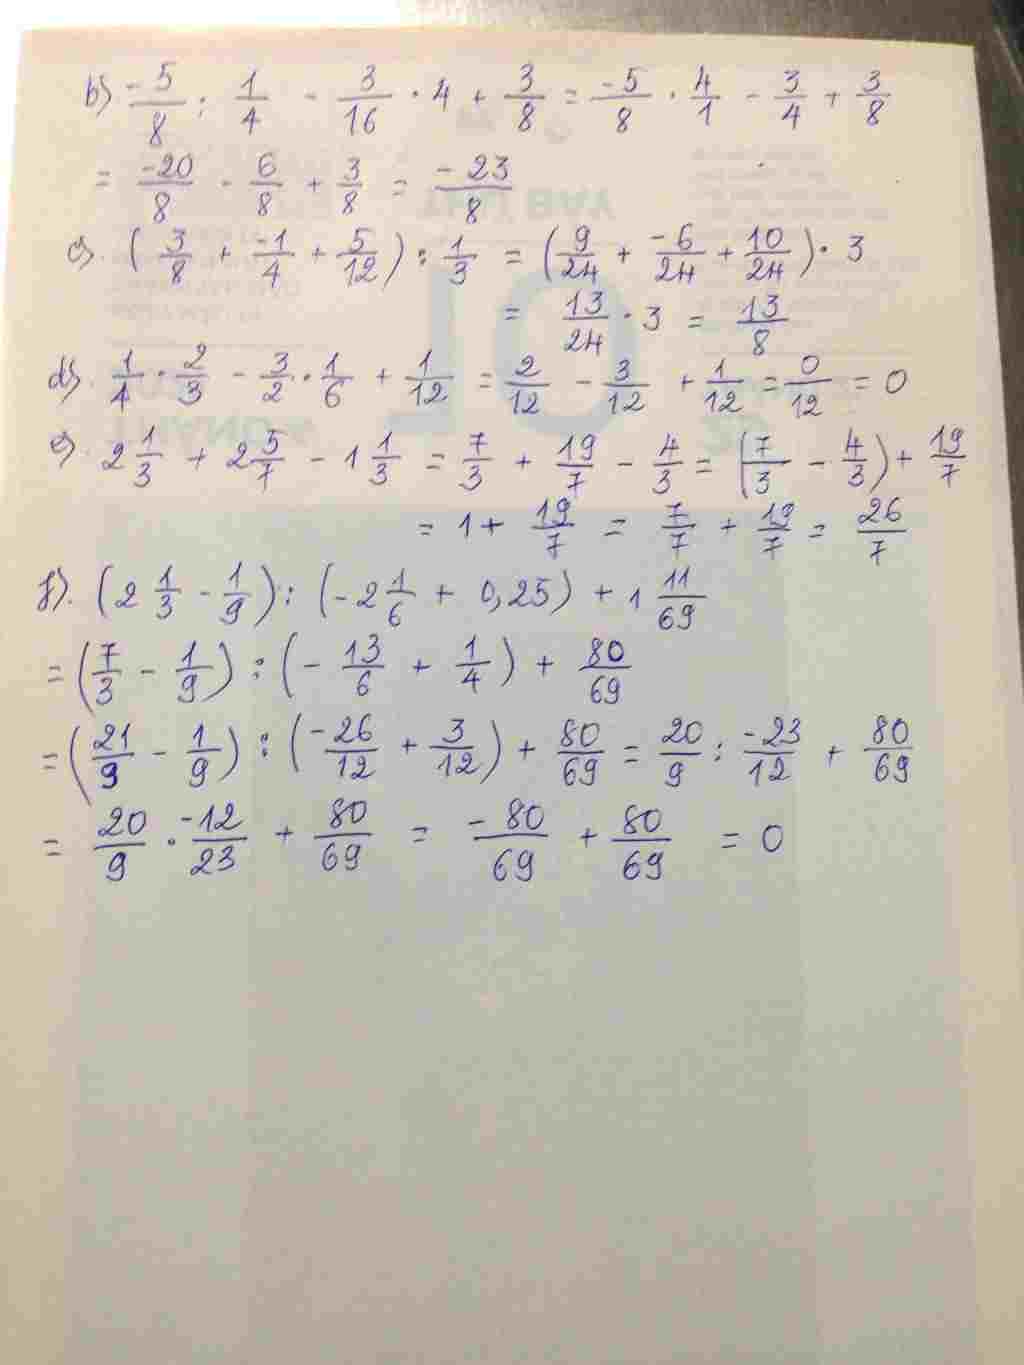 b) -5/8 : 1/4 - 3/16 · 4 + 3/8 = -5/8 · 4/1 - 3/4 + 3/8
= -20/8 - 6/8 + 3/8 = -23/8
c). (3/8 + -1/4 + 5/12) : 1/3 = (9/24 + -6/24 + 10/24) · 3
= 13/24 · 3 = 13/8
d). 1/4 · 2/3 - 3/2 · 1/6 + 1/12 = 2/12 - 3/12 + 1/12 = 0/12 = 0
e). 2 1/3 + 2 5/7 - 1 1/3 = 7/3 + 19/7 - 4/3 = (7/3 - 4/3) + 19/7
= 1 + 19/7 = 7/7 + 19/7 = 26/7
f). (2 1/3 - 1/9) : (-2 1/6 + 0,25) + 1 11/69
= (7/3 - 1/9) : (- 13/6 + 1/4) + 80/69
= (21/9 - 1/9) : (-26/12 + 3/12) + 80/69 = 20/9 : -23/12 + 80/69
= 20/9 · -12/23 + 80/69 = -80/69 + 80/69 = 0